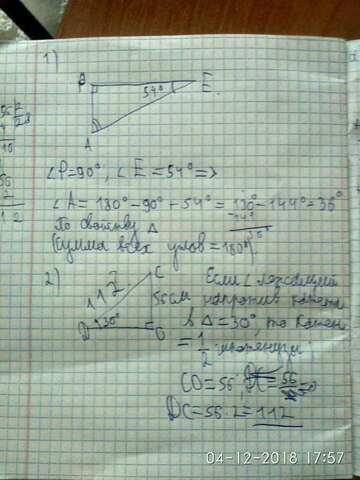 1)
P
E
54°
A
∠P=90°, ∠E=54° =>
∠A = 180° - 90° + 54° = 180° - 144° = 36°
По свойству Δ
(Сумма всех углов = 180°)
2)
C
112
56 см
D
30°
O
Если ∠ лежащий
напротив катета
в Δ = 30°, то катет
= 1/2 гипотенузы
CO = 56
56
DC = 56 · 2 = 112
04-12-2018 17:57